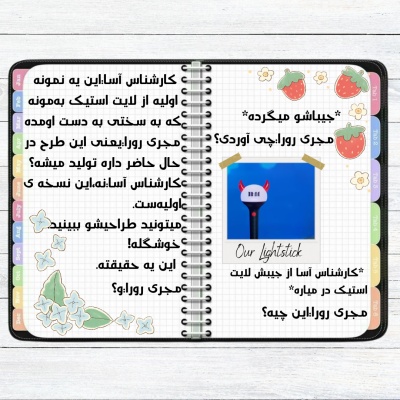 *جیباشو میگرده*
مجری رورا:چی آوردی؟
Our Lightstick
*کارشناس آسا از جیبش لایت
استیک در میاره*
مجری رورا:این چیه؟
کارشناس آسا:این یه نمونه
اولیه از لایت استیک بەمونه
که به سختی به دست اومده
مجری رورا:یعنی این طرح در
حال حاضر داره تولید میشه؟
کارشناس آسا:نه،این نسخه ی
اولیه‌ست.
میتونید طراحیشو ببینید.
خوشگله!
این یه حقیقته.
مجری رورا:و؟